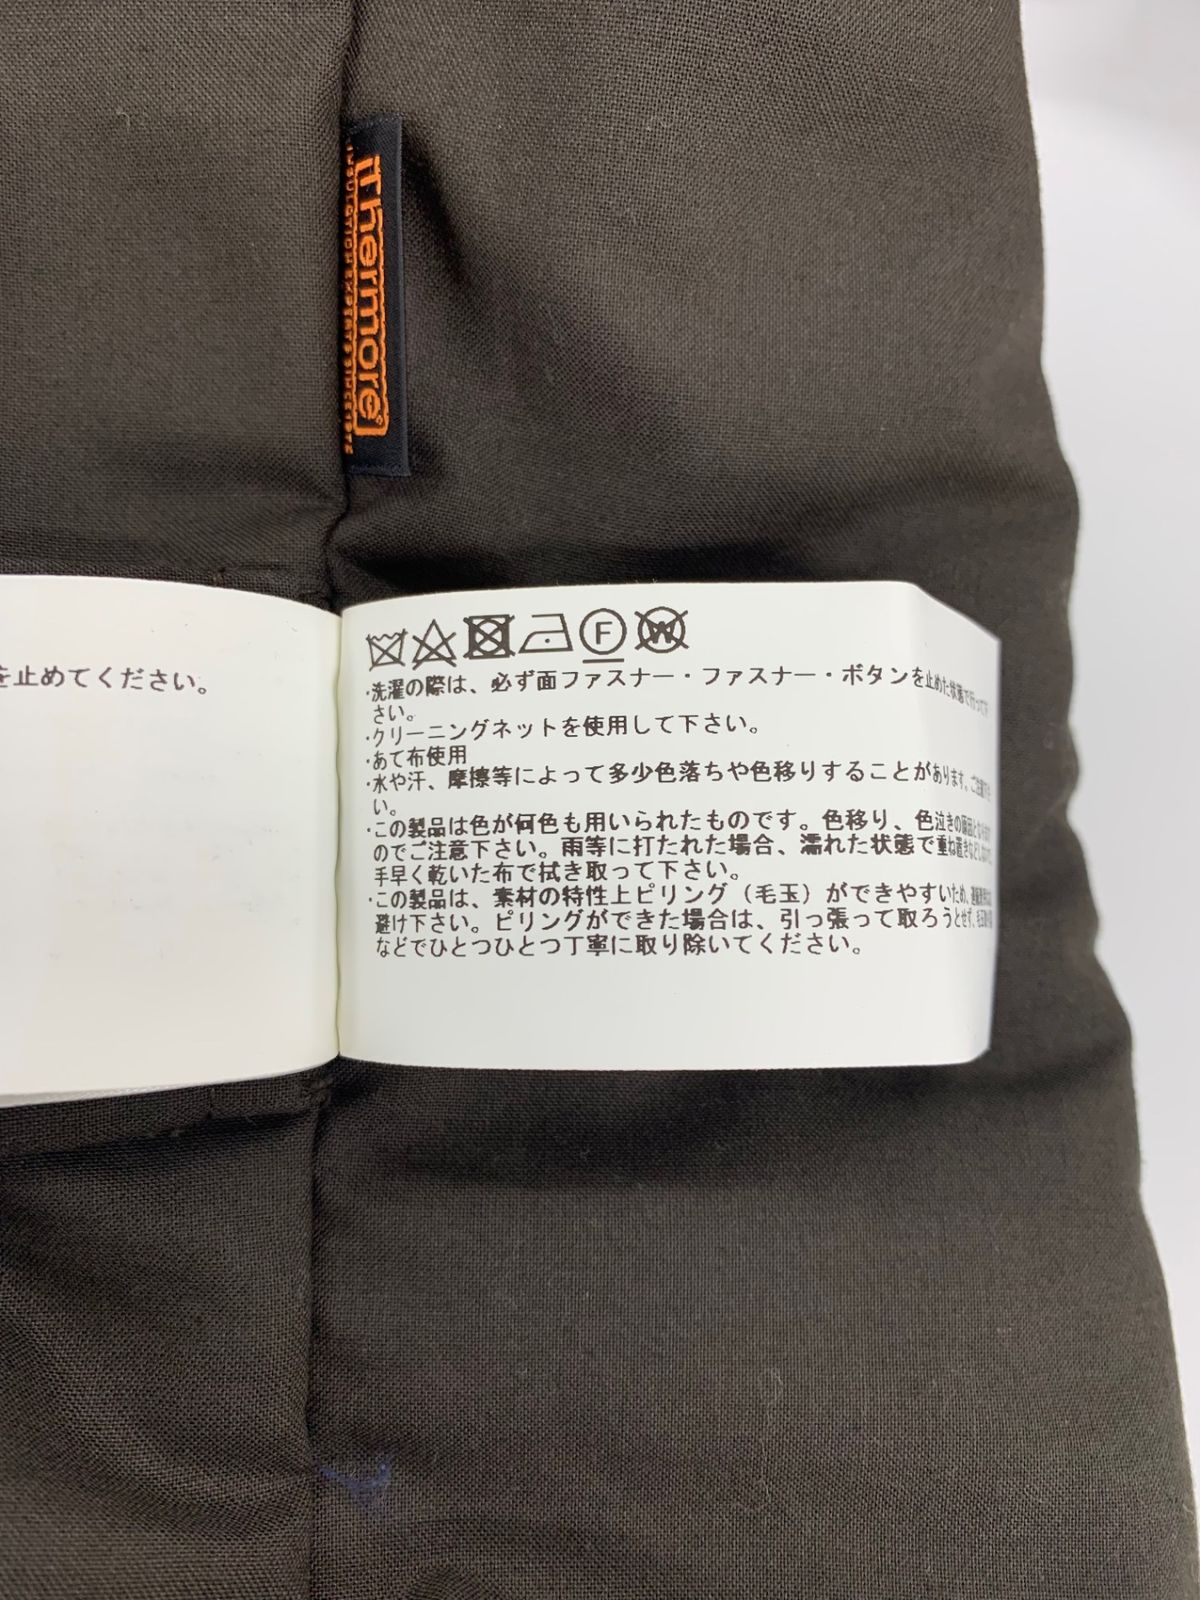 Thermore®
を止めてください。
F W
・洗濯の際は、必ず面ファスナー・ファスナー・ボタンを止めた状態で行って下
さい。
・クリーニングネットを使用して下さい。
・あて布使用
・水や汗、摩擦等によって多少色落ちや色移りすることがあります。ご注意
い。
・この製品は色が何色も用いられたものです。色移り、色泣きの原因
のでご注意下さい。雨等に打たれた場合、濡れた状態で重ね置きなど
手早く乾いた布で拭き取って下さい。
・この製品は、素材の特性上ピリング（毛玉）ができやすいため、
避け下さい。ピリングができた場合は、引っ張って取ろうとせず、
などでひとつひとつ丁寧に取り除いてください。